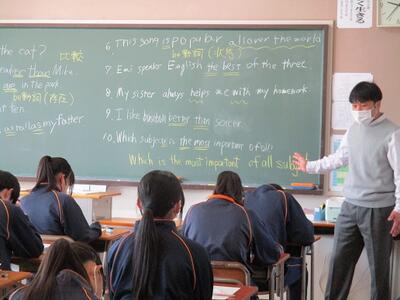 the cat?
比較
er than Mike.
are in the park
be動詞(存在)
at ten.
as tall as my father
6. This song is popular all over the world
be動詞(状態)
7. Emi speaks English the best of the three.
8. My sister always helps me with my homework
9. I like baseball better than soccer.
10. Which subject is the most important of all?
Which is the most important of all subj